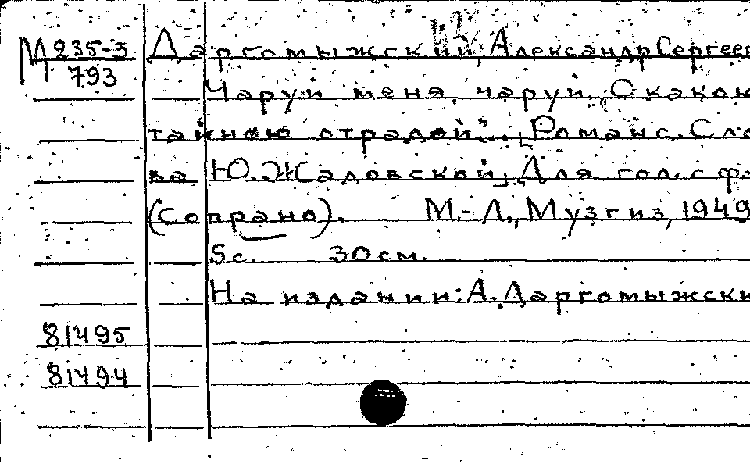 М 235-3 Даргомыжский, Александр Сергеев
793
Чаруй меня, чаруй. С какою
тайною отрадой". Романс. Сло
ва Ю. Жадовской. Для гол. с ф
(сопрано). М.-Л., Музгиз, 1949
5с. 30см.
На издании: А. Даргомыжски
81495
81494